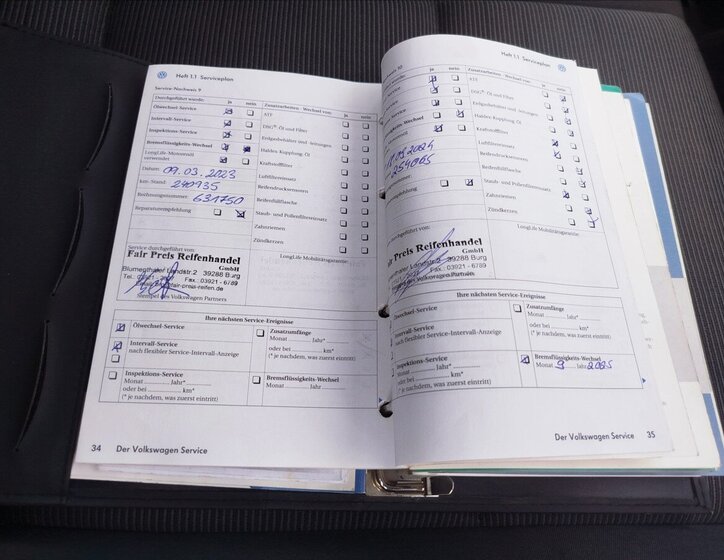 Heft 1.1 Serviceplan
Service-Nachweis 9
Durchgeführt wurde: ja nein
Ölwechsel-Service
Intervall-Service
Inspektions-Service
Bremsflüssigkeits-Wechsel
LongLife-Motorenöl
verwendet
Datum: 09.03.2023
km-Stand: 240935
Rechnungsnummer: 631750
Reparaturempfehlung
Zusatzarbeiten - Wechsel von: ja nein
ATF
DSG®-Öl und Filter
Erdgasbehälter und -leitungen
Haldex Kupplung-Öl
Kraftstofffilter
Luftfiltereinsatz
Reifendrucksensoren
Reifenfüllflasche
Staub- und Pollenfiltereinsatz
Zahnriemen
Zündkerzen
LongLife Mobilitätsgarantie:
Service durchgeführt von:
Fair Preis Reifenhandel
GmbH
Blumenthaler Landstr.2 39288 Burg
Fax.: 03921 - 6789
Stempel des Volkswagen Partners
Ihre nächsten Service-Ereignisse
Ölwechsel-Service
Intervall-Service
nach flexibler Service-Intervall-Anzeige
Inspektions-Service
Monat Jahr*
oder bei km*
(* je nachdem, was zuerst eintritt)
Zusatzumfänge
Monat Jahr*
oder bei km*
(* je nachdem, was zuerst eintritt)
Bremsflüssigkeits-Wechsel
Monat Jahr
34 Der Volkswagen Service
Heft 1.1 Serviceplan
ja nein
Zusatzarbeiten - Wechsel von: ja nein
ATF
DSG®-Öl und Filter
Erdgasbehälter und -leitungen
Haldex Kupplung-Öl
Kraftstofffilter
Luftfiltereinsatz
Reifendrucksensoren
Reifenfüllflasche
Staub- und Pollenfiltereinsatz
Zahnriemen
Zündkerzen
LongLife Mobilitätsgarantie:
Preis Reifenhandel
GmbH
39288 Burg
Fax.: 03921 - 6789
Volkswagen Partners
Ihre nächsten Service-Ereignisse
Ölwechsel-Service
Intervall-Service
nach flexibler Service-Intervall-Anzeige
Inspektions-Service
Monat Jahr*
oder bei km*
(* je nachdem, was zuerst eintritt)
Zusatzumfänge
Monat Jahr*
oder bei km*
(* je nachdem, was zuerst eintritt)
Bremsflüssigkeits-Wechsel
Monat 9 Jahr 2025
Der Volkswagen Service 35